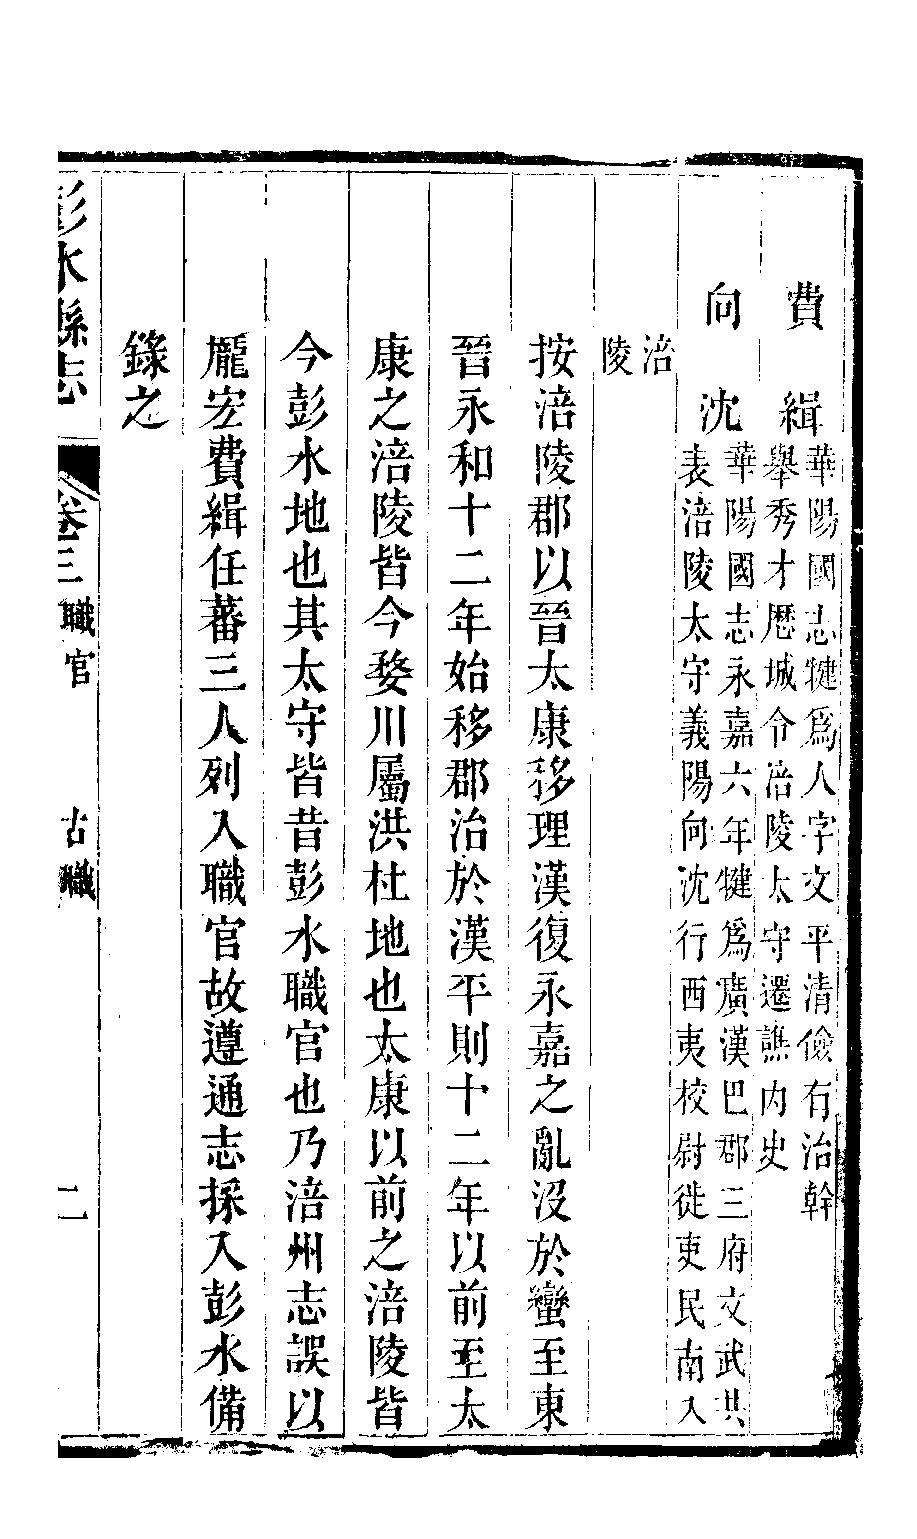 費緝華陽國志犍爲人字文平清儉有治幹
舉秀才歷城令涪陵太守遷譙內史
向沈華陽國志永嘉六年犍爲廣漢巴郡三府文武共
表涪陵太守義陽向沈行西夷校尉徙吏民南入
涪
陵
按涪陵郡以晉太康移理漢復永嘉之亂沒於蠻至東
晉永和十二年始移郡治於漢平則十二年以前至太
康之涪陵皆今婺川屬洪杜地也太康以前之涪陵皆
今彭水地也其太守皆昔彭水職官也乃涪州志誤以
龐宏費緝任蕃三人列入職官故遵通志採入彭水備
錄之
彭水縣志 卷三 職官 古職 二